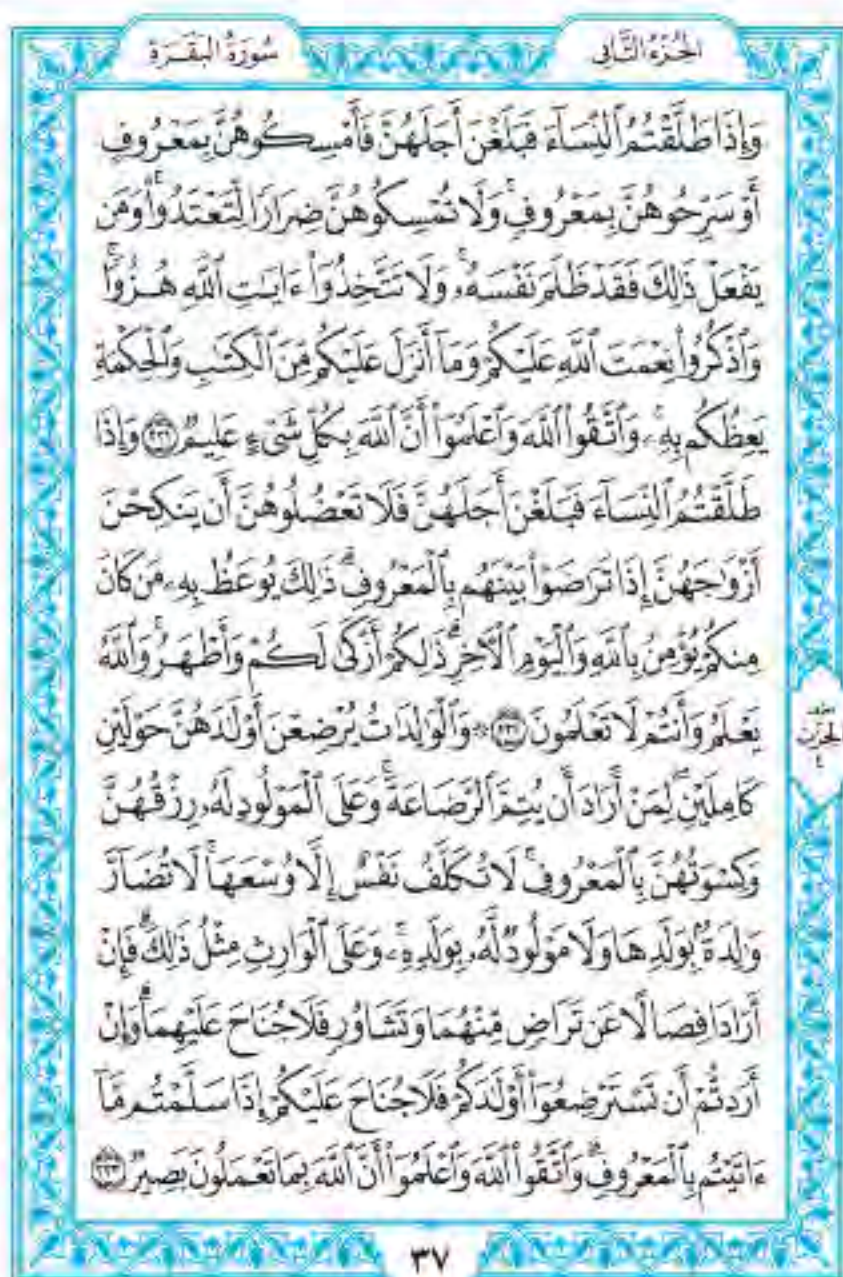 سُورَةُ البَقَرَةِ
الجُزْءُ الثَّانِي
وَإِذَا طَلَّقْتُمُ ٱلنِّسَآءَ فَبَلَغْنَ أَجَلَهُنَّ فَأَمْسِكُوهُنَّ بِمَعْرُوفٍ
أَوْ سَرِّحُوهُنَّ بِمَعْرُوفٖۚ وَلَا تُمْسِكُوهُنَّ ضِرَارٗا لِّتَعْتَدُواْۚ وَمَن
يَفْعَلْ ذَٰلِكَ فَقَدْ ظَلَمَ نَفْسَهُۥۚ وَلَا تَتَّخِذُوٓاْ ءَايَٰتِ ٱللَّهِ هُزُوٗاۚ
وَٱذْكُرُواْ نِعْمَتَ ٱللَّهِ عَلَيْكُمْ وَمَآ أَنزَلَ عَلَيْكُم مِّنَ ٱلْكِتَٰبِ وَٱلْحِكْمَةِ
يَعِظُكُم بِهِۦۚ وَٱتَّقُواْ ٱللَّهَ وَٱعْلَمُوٓاْ أَنَّ ٱللَّهَ بِكُلِّ شَيْءٍ عَلِيمٞ ٢٣١ وَإِذَا
طَلَّقْتُمُ ٱلنِّسَآءَ فَبَلَغْنَ أَجَلَهُنَّ فَلَا تَعْضُلُوهُنَّ أَن يَنكِحْنَ
أَزْوَٰجَهُنَّ إِذَا تَرَٰضَوْاْ بَيْنَهُم بِٱلْمَعْرُوفِۗ ذَٰلِكَ يُوعَظُ بِهِۦ مَن كَانَ
مِنكُمْ يُؤْمِنُ بِٱللَّهِ وَٱلْيَوْمِ ٱلْأٓخِرِۗ ذَٰلِكُمْ أَزْكَىٰ لَكُمْ وَأَطْهَرُۚ وَٱللَّهُ
يَعْلَمُ وَأَنتُمْ لَا تَعْلَمُونَ ٢٣٢ ۞ وَٱلْوَٰلِدَٰتُ يُرْضِعْنَ أَوْلَٰدَهُنَّ حَوْلَيْنِ
كَامِلَيْنِۖ لِمَنْ أَرَادَ أَن يُتِمَّ ٱلرَّضَاعَةَۚ وَعَلَى ٱلْمَوْلُودِ لَهُۥ رِزْقُهُنَّ
وَكِسْوَتُهُنَّ بِٱلْمَعْرُوفِۚ لَا تُكَلَّفُ نَفْسٌ إِلَّا وُسْعَهَاۚ لَا تُضَآرَّ
وَٰلِدَةُۢ بِوَلَدِهَا وَلَا مَوْلُودٞ لَّهُۥ بِوَلَدِهِۦۚ وَعَلَى ٱلْوَارِثِ مِثْلُ ذَٰلِكَۗ فَإِنْ
أَرَادَا فِصَالًا عَن تَرَاضٖ مِّنْهُمَا وَتَشَاوُرٖ فَلَا جُنَاحَ عَلَيْهِمَاۗ وَإِنْ
أَرَدتُّمْ أَن تَسْتَرْضِعُوٓاْ أَوْلَٰدَكُمْ فَلَا جُنَاحَ عَلَيْكُمْ إِذَا سَلَّمْتُم مَّآ
ءَاتَيْتُم بِٱلْمَعْرُوفِۗ وَٱتَّقُواْ ٱللَّهَ وَٱعْلَمُوٓاْ أَنَّ ٱللَّهَ بِمَا تَعْمَلُونَ بَصِيرٞ ٢٣٣
الحِزْبِ
٤
٣٧